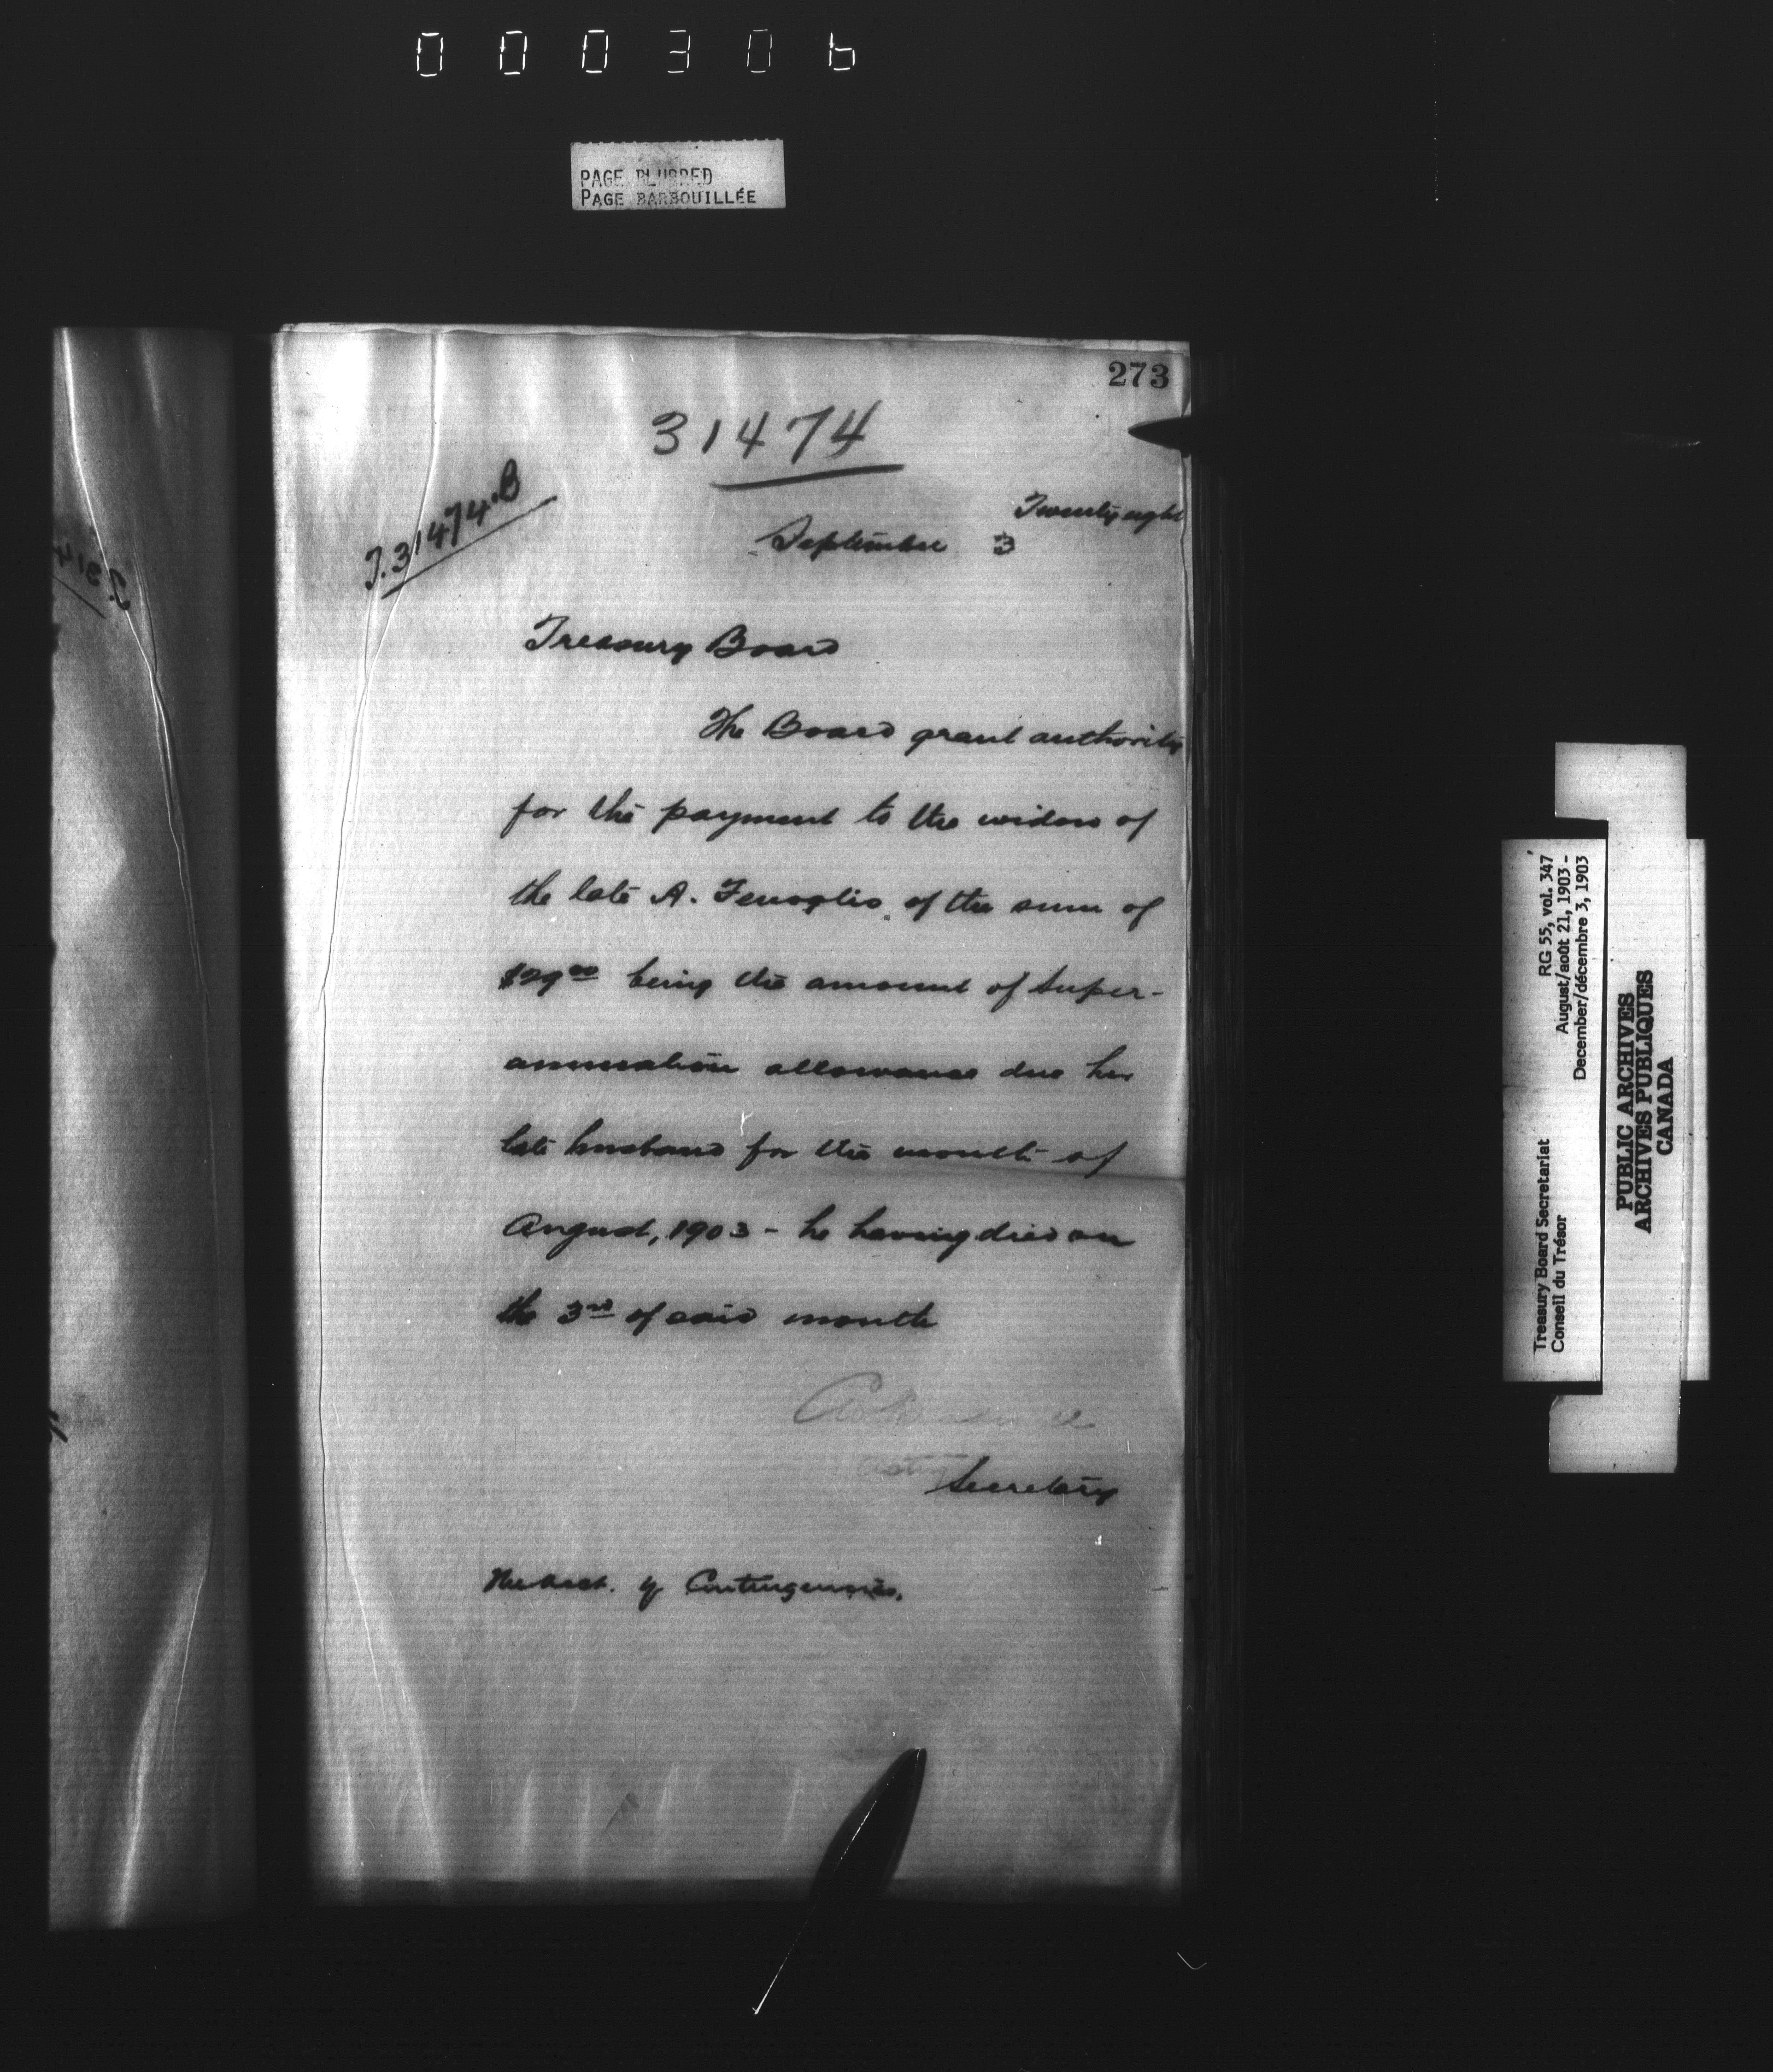 000306
PAGE BLURRED
PAGE BARBOUILLÉE
273
31474
T.31474.B
Twenty eight
September 3
Treasury Board
The Board grant authority
for the payment to the widow of
the late A. Fenoglio of the sum of
$29 00 being the amount of Super-
annuation allowance due her
late husband for the month of
August, 1903 - he having died on
the 3rd of said month
Secretary
of Contingencies.
Treasury Board Secretariat RG 55, vol. 347
Conseil du Trésor August/août 21, 1903 -
December/décembre 3, 1903
PUBLIC ARCHIVES
ARCHIVES PUBLIQUES
CANADA